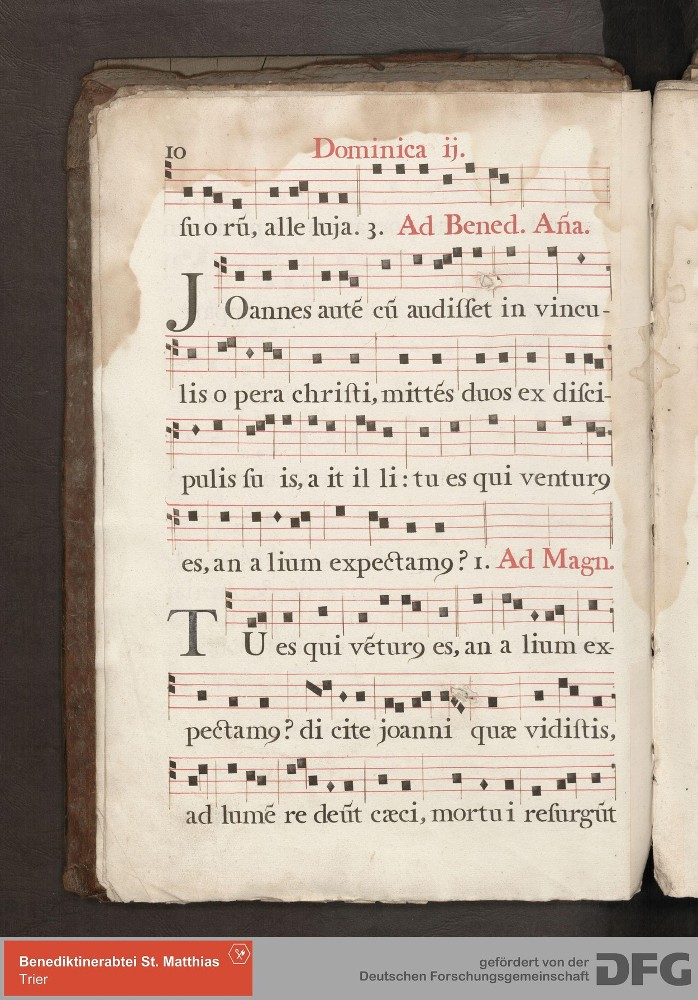 10 Dominica ij.
ſu o rũ, alle luja. 3. Ad Bened. Aña.
JOannes autẽ cũ audiſſet in vincu-
lis o pera chriſti, mittẽs duos ex diſci-
pulis ſu is, a it il li: tu es qui venturꝰ
es, an a lium expectamꝰ? 1. Ad Magn.
TU es qui vẽturꝰ es, an a lium ex-
pectamꝰ? di cite joanni quæ vidiſtis,
ad lumẽ re deũt cæci, mortu i reſurgũt
Benediktinerabtei St. Matthias
Trier
gefördert von der
Deutschen Forschungsgemeinschaft
DFG